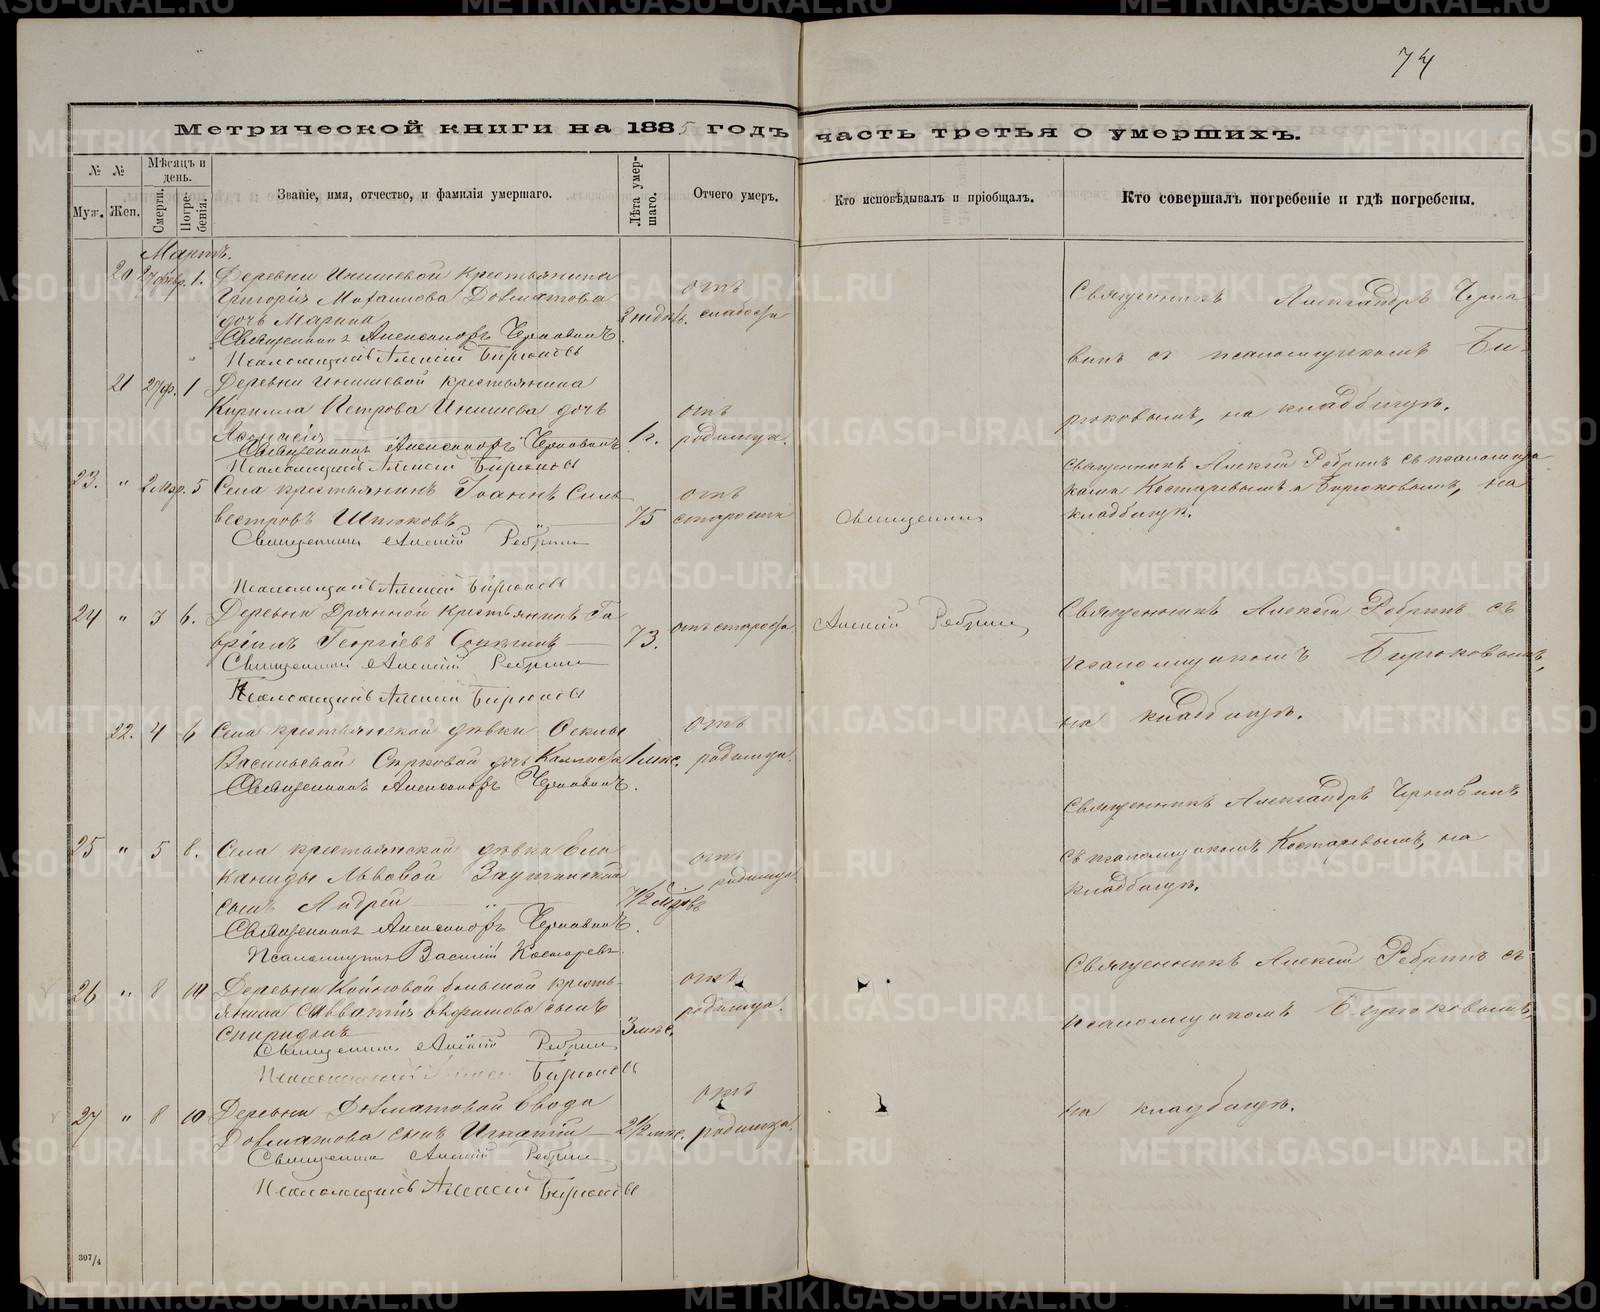 74
Метрической книги на 1885 годъ часть третья о умершихъ.
№ № Мѣсяцъ и день. Званіе, имя, отчество, и фамилія умершаго. Лѣта умершаго. Отчего умеръ. Кто исповѣдывалъ и пріобщалъ. Кто совершалъ погребеніе и гдѣ погребены.
Муж. Жен. Смерти. Погребенія.
Мартъ.
20 27 февр. 1. Деревни Инишевой крестьянина
Григорія Михаилова Довматова
дочь Марина 2 недѣл. отъ слабости
Священникъ Александръ Чернавинъ
Псаломщикъ Алексій Бирюковъ
Священникъ Александръ Черна-
винъ съ псаломщикомъ Би-
рюковымъ, на кладбищѣ.
21 27 ф. 1 Деревни Инишевой крестьянина
Кирилла Петрова Инишева дочь
1 г. отъ родимца.
Священникъ Александръ Чернавинъ
Псаломщикъ Алексій Бирюковъ
23. " 2 мар. 5 Села крестьянинъ Іоаннъ Силь-
вестровъ Шпюковъ 75 отъ старости Священникъ
Священникъ Алексій Ребринъ
Псаломщикъ Алексій Бирюковъ
Священникъ Алексій Ребринъ съ псаломщи-
ками Костаревымъ и Бирюковымъ, на
кладбищѣ.
24 " 3 6. Деревни Дрянной крестьянинъ Га-
вріилъ Георгіевъ 73. отъ старости Алексій Ребринъ
Священникъ Алексій Ребринъ
Псаломщикъ Алексій Бирюковъ
Священникъ Алексій Ребринъ съ
псаломщикомъ Бирюковымъ,
на кладбищѣ.
22. 4 6 Села крестьянской дѣвки
Васильевой дочь 1 мѣс. отъ родимца.
Священникъ Александръ Чернавинъ.
Священникъ Александръ Чернавинъ
съ псаломщикомъ Костаревымъ, на
кладбищѣ.
25 " 5 8. Села крестьянской дѣвки Ела-
каниды Львовой
сынъ Андрей " отъ родимца
Священникъ Александръ Чернавинъ.
Псаломщикъ Василій Костаревъ.
26 " 8 10 Деревни Койновой большой кресть-
янина Савватія Ефимова сынъ
Спиридонъ 3 мѣс. отъ родимца.
Священникъ Алексій Ребринъ
Псаломщикъ Бирюковъ
Священникъ Алексій Ребринъ съ
псаломщикомъ Бирюковымъ,
на кладбищѣ.
27 " 8 10 Деревни Довматовой
Довматова сынъ Игнатій 2 1/2 мѣс. отъ родимца.
Священникъ Алексій Ребринъ
Псаломщикъ Алексій Бирюковъ
307/4
METRIKI.GASO-URAL.RU